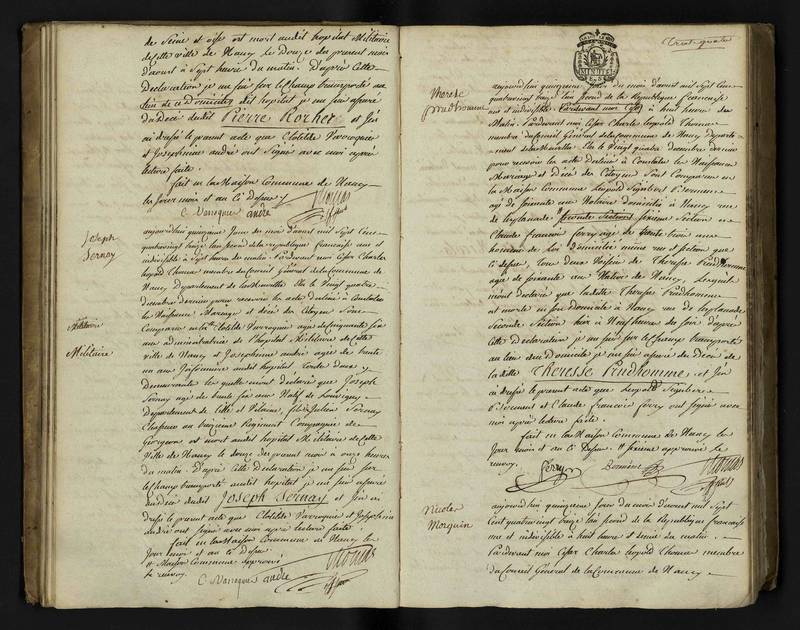 de Seine et oise est mort audit hopital Militaire
de Cette ville de Nancy le Douze du present mois
d'aoust à Sept heures du matin. D'après Cette
Declaration je me suis sur le champ transporté au
lieu de ce Domicile dit hopital je me suis assuré
du Décès dudit Pierre Rocher et J'ai
ai dressé le present acte que Clotilde Varroquier
et Josephine andré ont Signé avec moi après
lecture faite.
fait en la Maison Commune de Nancy
les Jour mois et an Ci Dessus
C Varroquier andré Thomas
Joseph
Sernay
aujourdhui quinzieme Jour du mois d'aoust mil Sept Cent
quatrevingt treize l'an second de la republique française une et
indivisible à Sept heures du matin. Pardevant moi Cesar Charles
Leopold Thomas membre du Conseil General de la Commune de
Nancy Departement de la Meurthe Elu le Vingt quatre
decembre dernier pour recevoir les actes destinés à Constater
les Naissances Mariages et décès des Citoyens Sont
Comparus Clotilde Varroquier agée de Cinquante Six
ans administratrice de l'hopital Militaire de Cette
ville de Nancy et Josephine andré agée de trente
un ans Infirmiere audit hopital toute deux y
Demeurantes les quelles m'ont déclaré que Joseph
Sernay agé de trente six ans Natif de Louvigny
Departement de l'ille et Vilaine, fils de Julien Sernay
Chasseur au onzieme Regiment Compagnie de
est mort audit hopital Militaire de Cette
Ville de Nancy le douze du present mois à onze heures
du matin. D'après Cette Declaration je me suis sur
le champ transporté audit hopital je me suis assuré
du Décès dudit Joseph Sernay et J'ai ai
dressé le present acte que Clotilde Varroquier et Josephine
andré ont Signé avec moi après lecture faite.
fait en la Maison Commune de Nancy les
Jour mois et an Ci dessus
Maison Commune approuvé
le renvoy.
C Varroquier andré Thomas
Militaire
Militaire
MINUTE
Trent-quatre
Therese
prudhomme
aujourdhui quinzieme Jour du mois d'aoust mil Sept Cent
quatrevingt treize l'an second de la Republique francaise
une et indivisible Pardevant moi Cesar à huit heures du
Matin. Pardevant moi Cesar Charles Leopold Thomas
membre du Conseil Général de la Commune de Nancy Departe-
ment de la Meurthe Elu le Vingt quatre decembre dernier
pour recevoir les actes destinés à Constater les Naissances
Mariages et Décès des Citoyens Sont Comparus en
la Maison Commune Leopold
agé de soixante ans Notaire domicilié à Nancy rue
de l'esplanade seconde Section et
Claude francois ferry agé de trente trois ans
homme de loi domicilié même rue et section que
Ci dessus, tous deux Voisins de Therese Prudhomme
agée de soixante ans Native de Nancy, Lesquels
m'ont declaré que ladite Therese Prudhomme
est morte en son domicile à Nancy rue de l'esplanade
Seconde Section hier à Neuf heures du soir d'après
Cette Declaration je me suis sur le champ transporté
au lieu du Domicile je me suis assuré du Décès de
la ditte Theresse Prudhomme, et J'ai
ai dressé le present acte que Leopold
et Claude francois ferry ont signé avec
moi après lecture faite.
fait en la Maison Commune de Nancy les
Jour mois et an Ci Dessus. approuvé le
renvoy.
Ferry Thomas
Nicolas
Morquin
aujourdhui quinzieme Jour du mois d'aoust mil Sept
Cent quatrevingt treize l'an second de la Republique francaise
une et indivisible à huit heures et demie du matin.
Pardevant moi Cesar Charles Leopold Thomas membre
du Conseil Général de la Commune de Nancy